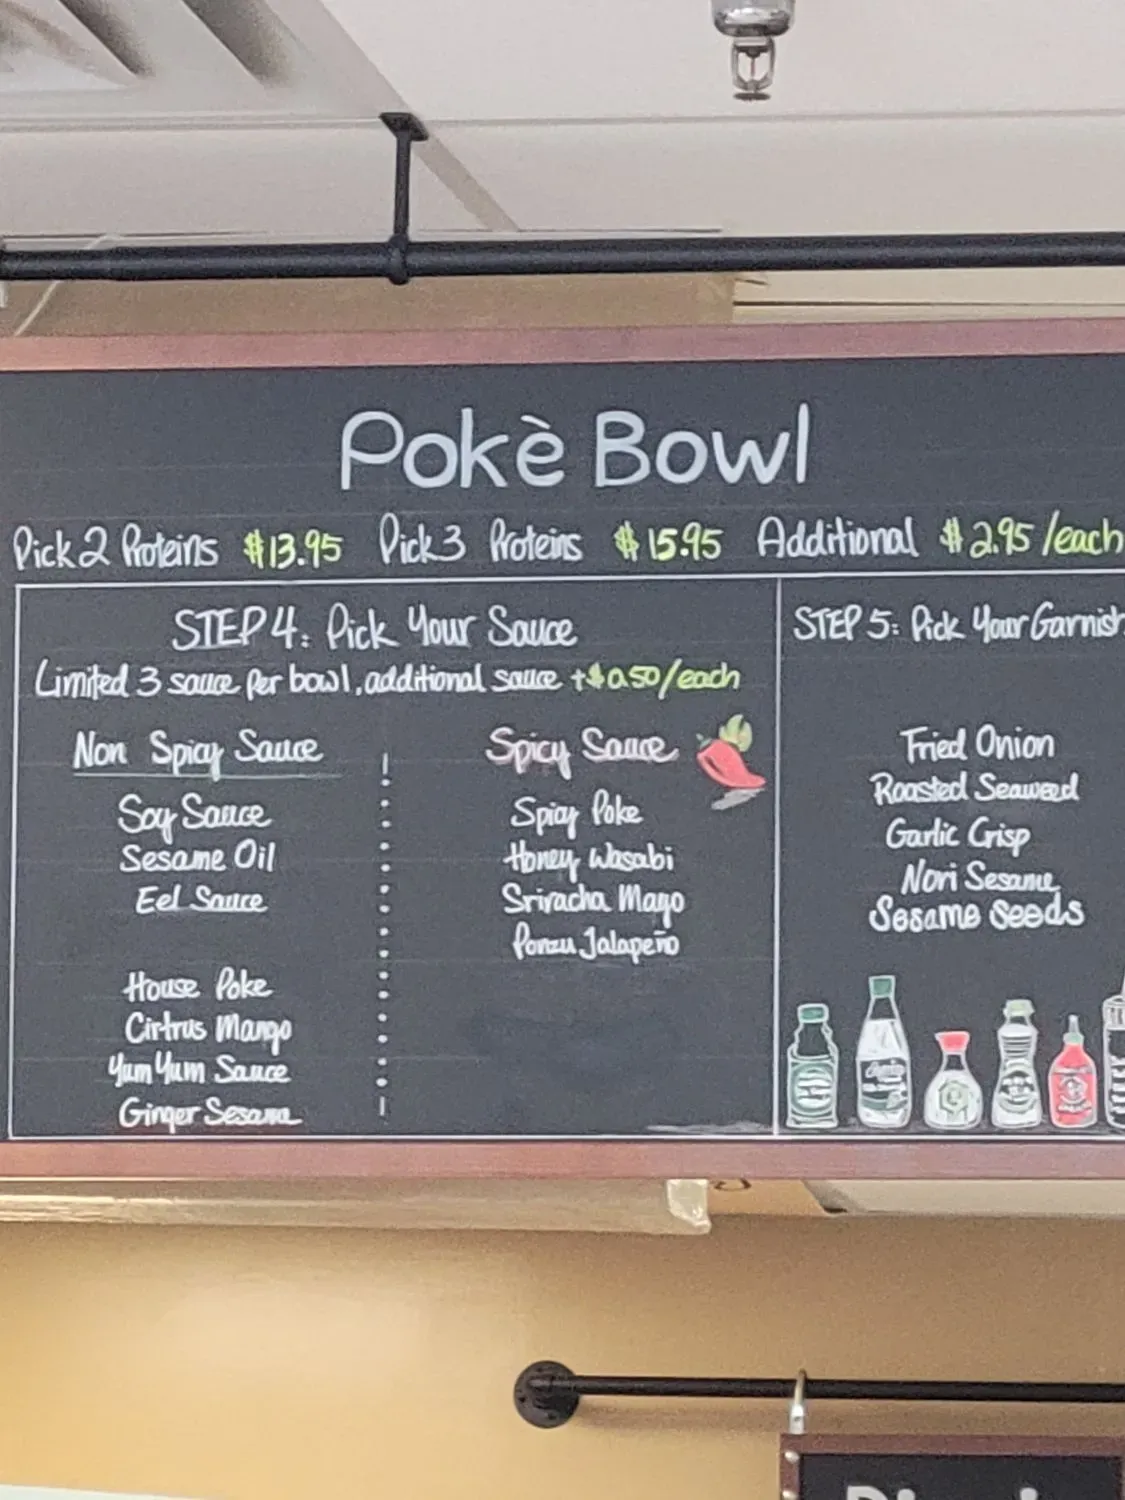 Pokè Bowl
Pick 2 Proteins $13.95 Pick 3 Proteins $15.95 Additional $2.95/each
STEP 4: Pick Your Sauce
Limited 3 sauce per bowl, additional sauce +$0.50/each
Non Spicy Sauce
Soy Sauce
Sesame Oil
Eel Sauce
House Poke
Cirtrus Mango
Yum Yum Sauce
Ginger Sesame
Spicy Sauce
Spicy Poke
Honey Wasabi
Sriracha Mayo
Ponzu Jalapeño
STEP 5: Pick Your Garnish
Fried Onion
Roasted Seaweed
Garlic Crisp
Nori Sesame
Sesame Seeds